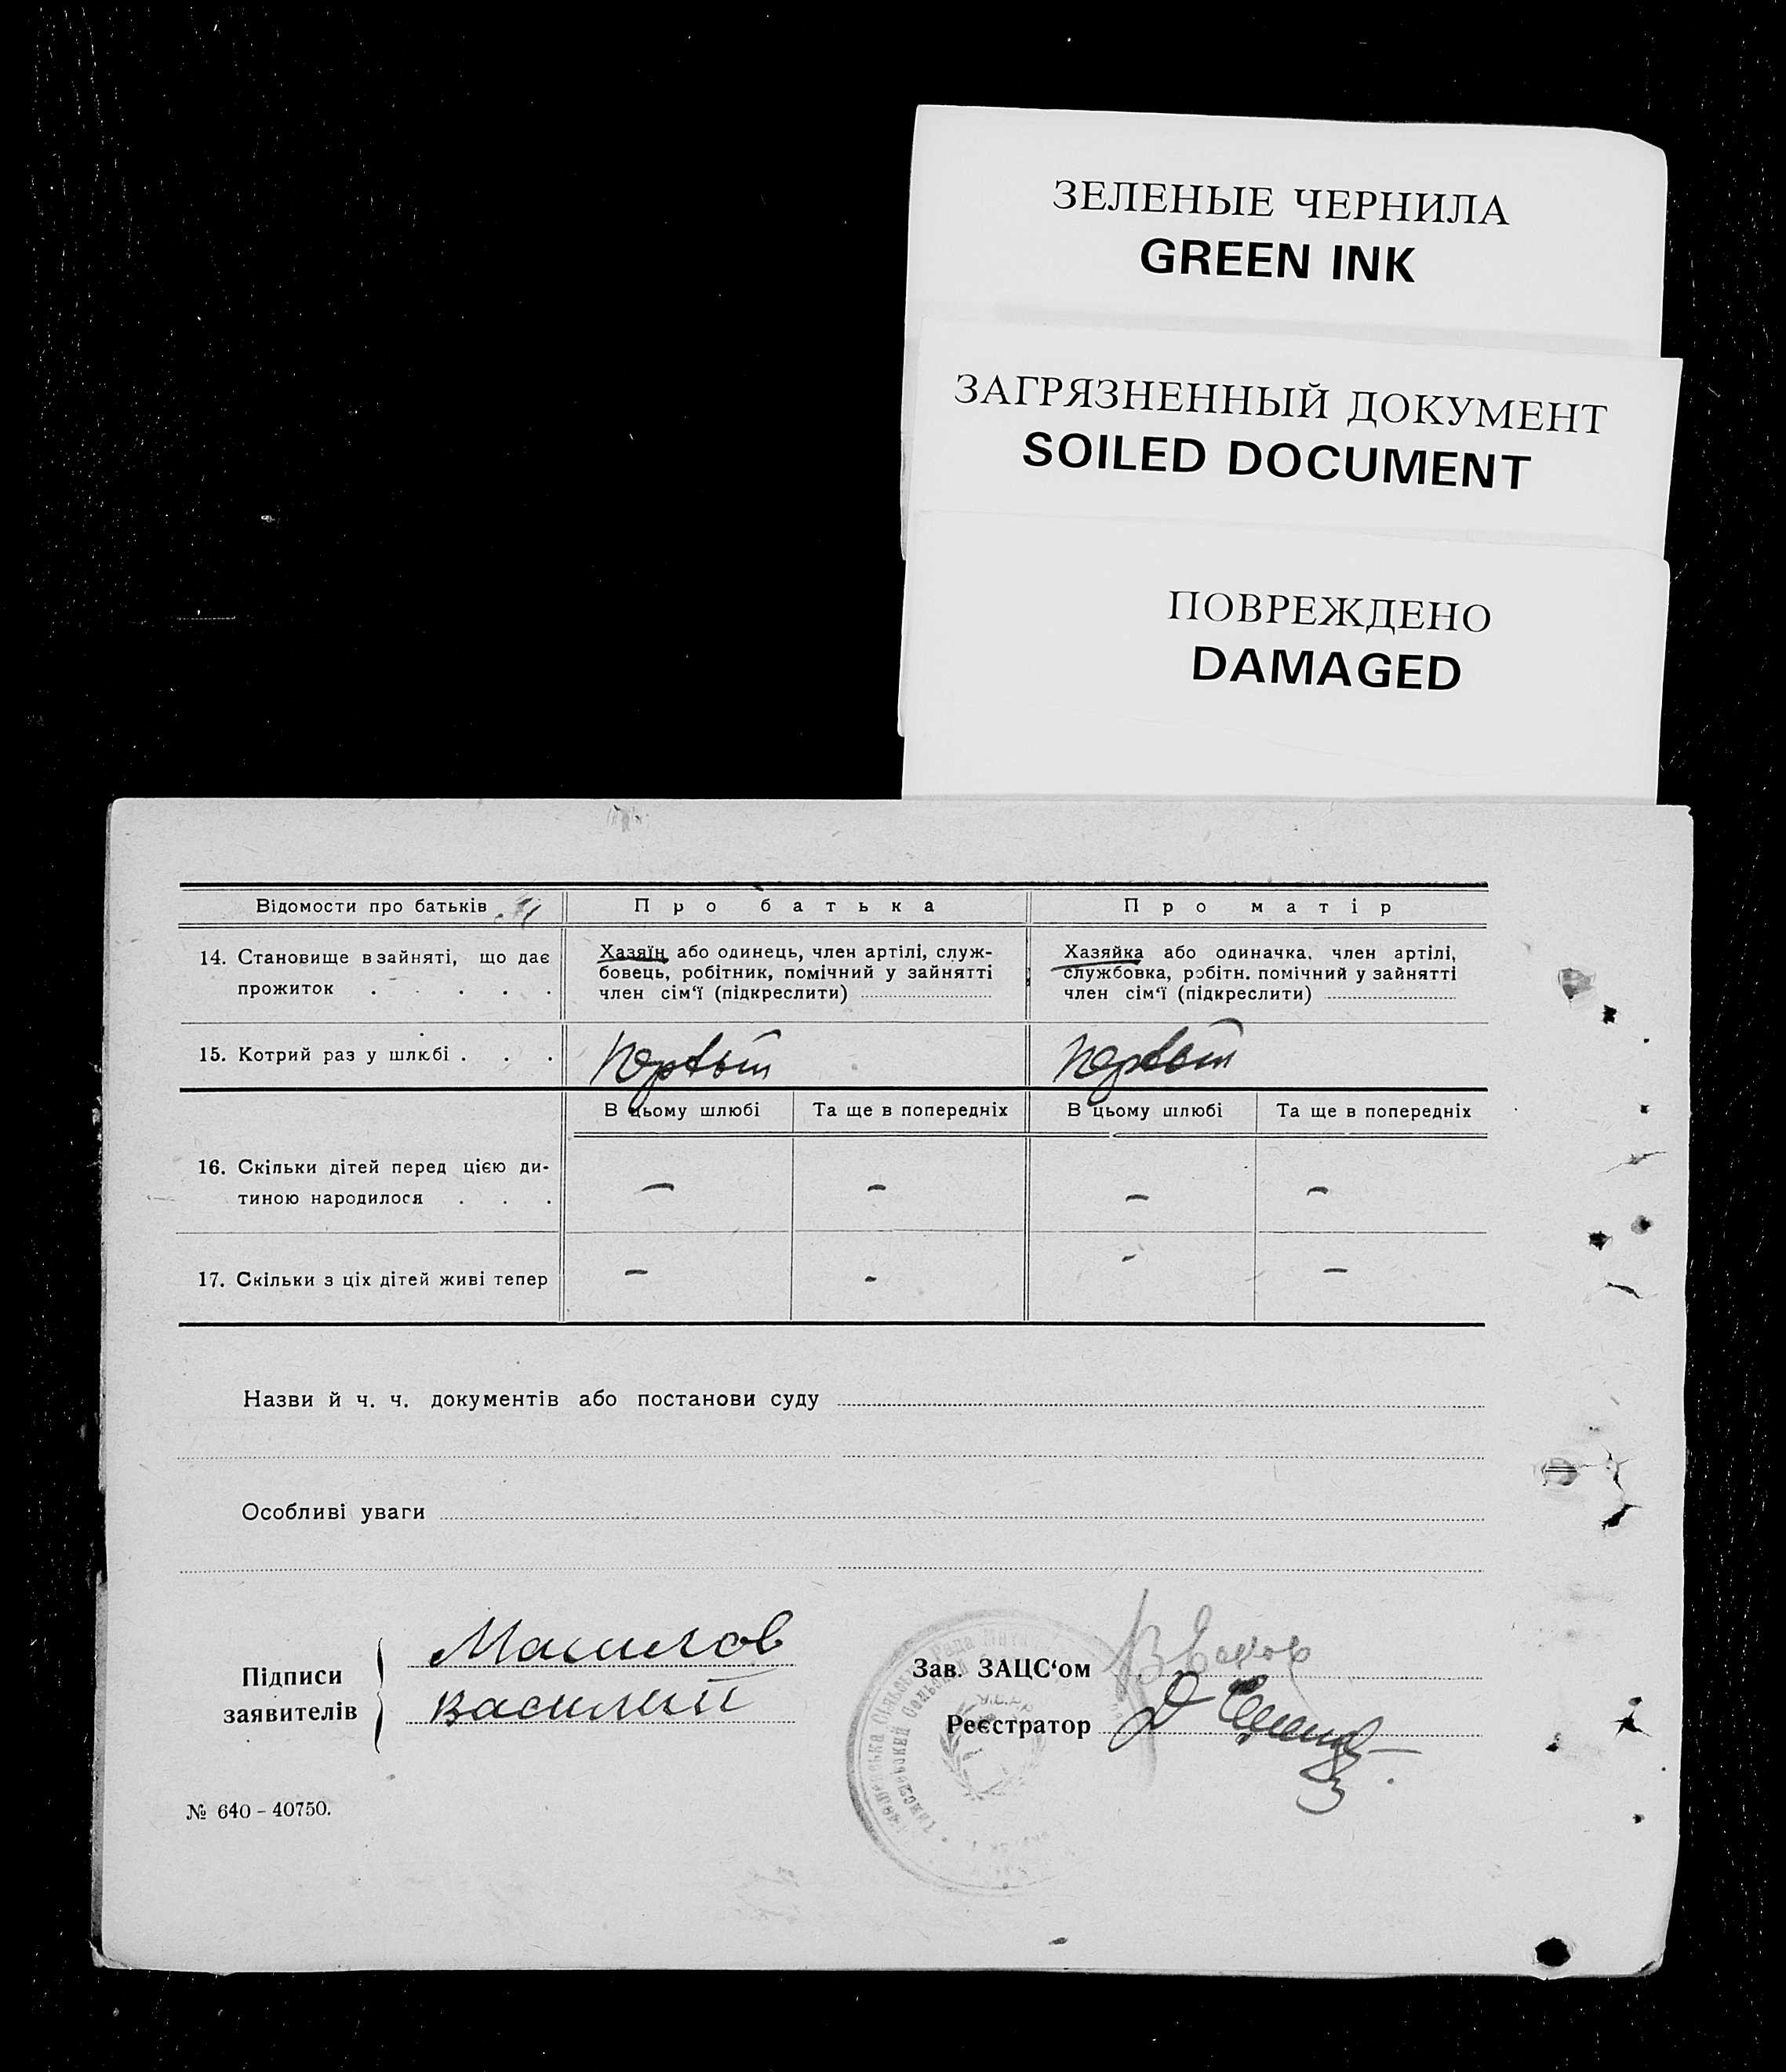 ЗЕЛЕНЫЕ ЧЕРНИЛА
GREEN INK
ЗАГРЯЗНЕННЫЙ ДОКУМЕНТ
SOILED DOCUMENT
ПОВРЕЖДЕНО
DAMAGED
Відомости про батьків
Про батька
Про матір
14. Становище в зайняті, що дає
прожиток . . . . .
Хазяїн або одинець, член артілі, служ-
бовець, робітник, помічний у зайнятті
член сім'ї (підкреслити)
Хазяйка або одиначка, член артілі,
службовка, робітн. помічний у зайнятті
член сім'ї (підкреслити)
15. Котрий раз у шлюбі . . .
Первый
Первый
В цьому шлюбі
Та ще в попередніх
В цьому шлюбі
Та ще в попередніх
16. Скільки дітей перед цією ди-
тиною народилося . . .
– – – –
17. Скільки з ціх дітей живі тепер
– – – –
Назви й ч. ч. документів або постанови суду
Особливі уваги
Підписи
заявителів
Василий
Зав. ЗАЦС'ом
Реєстратор
№ 640 – 40750.